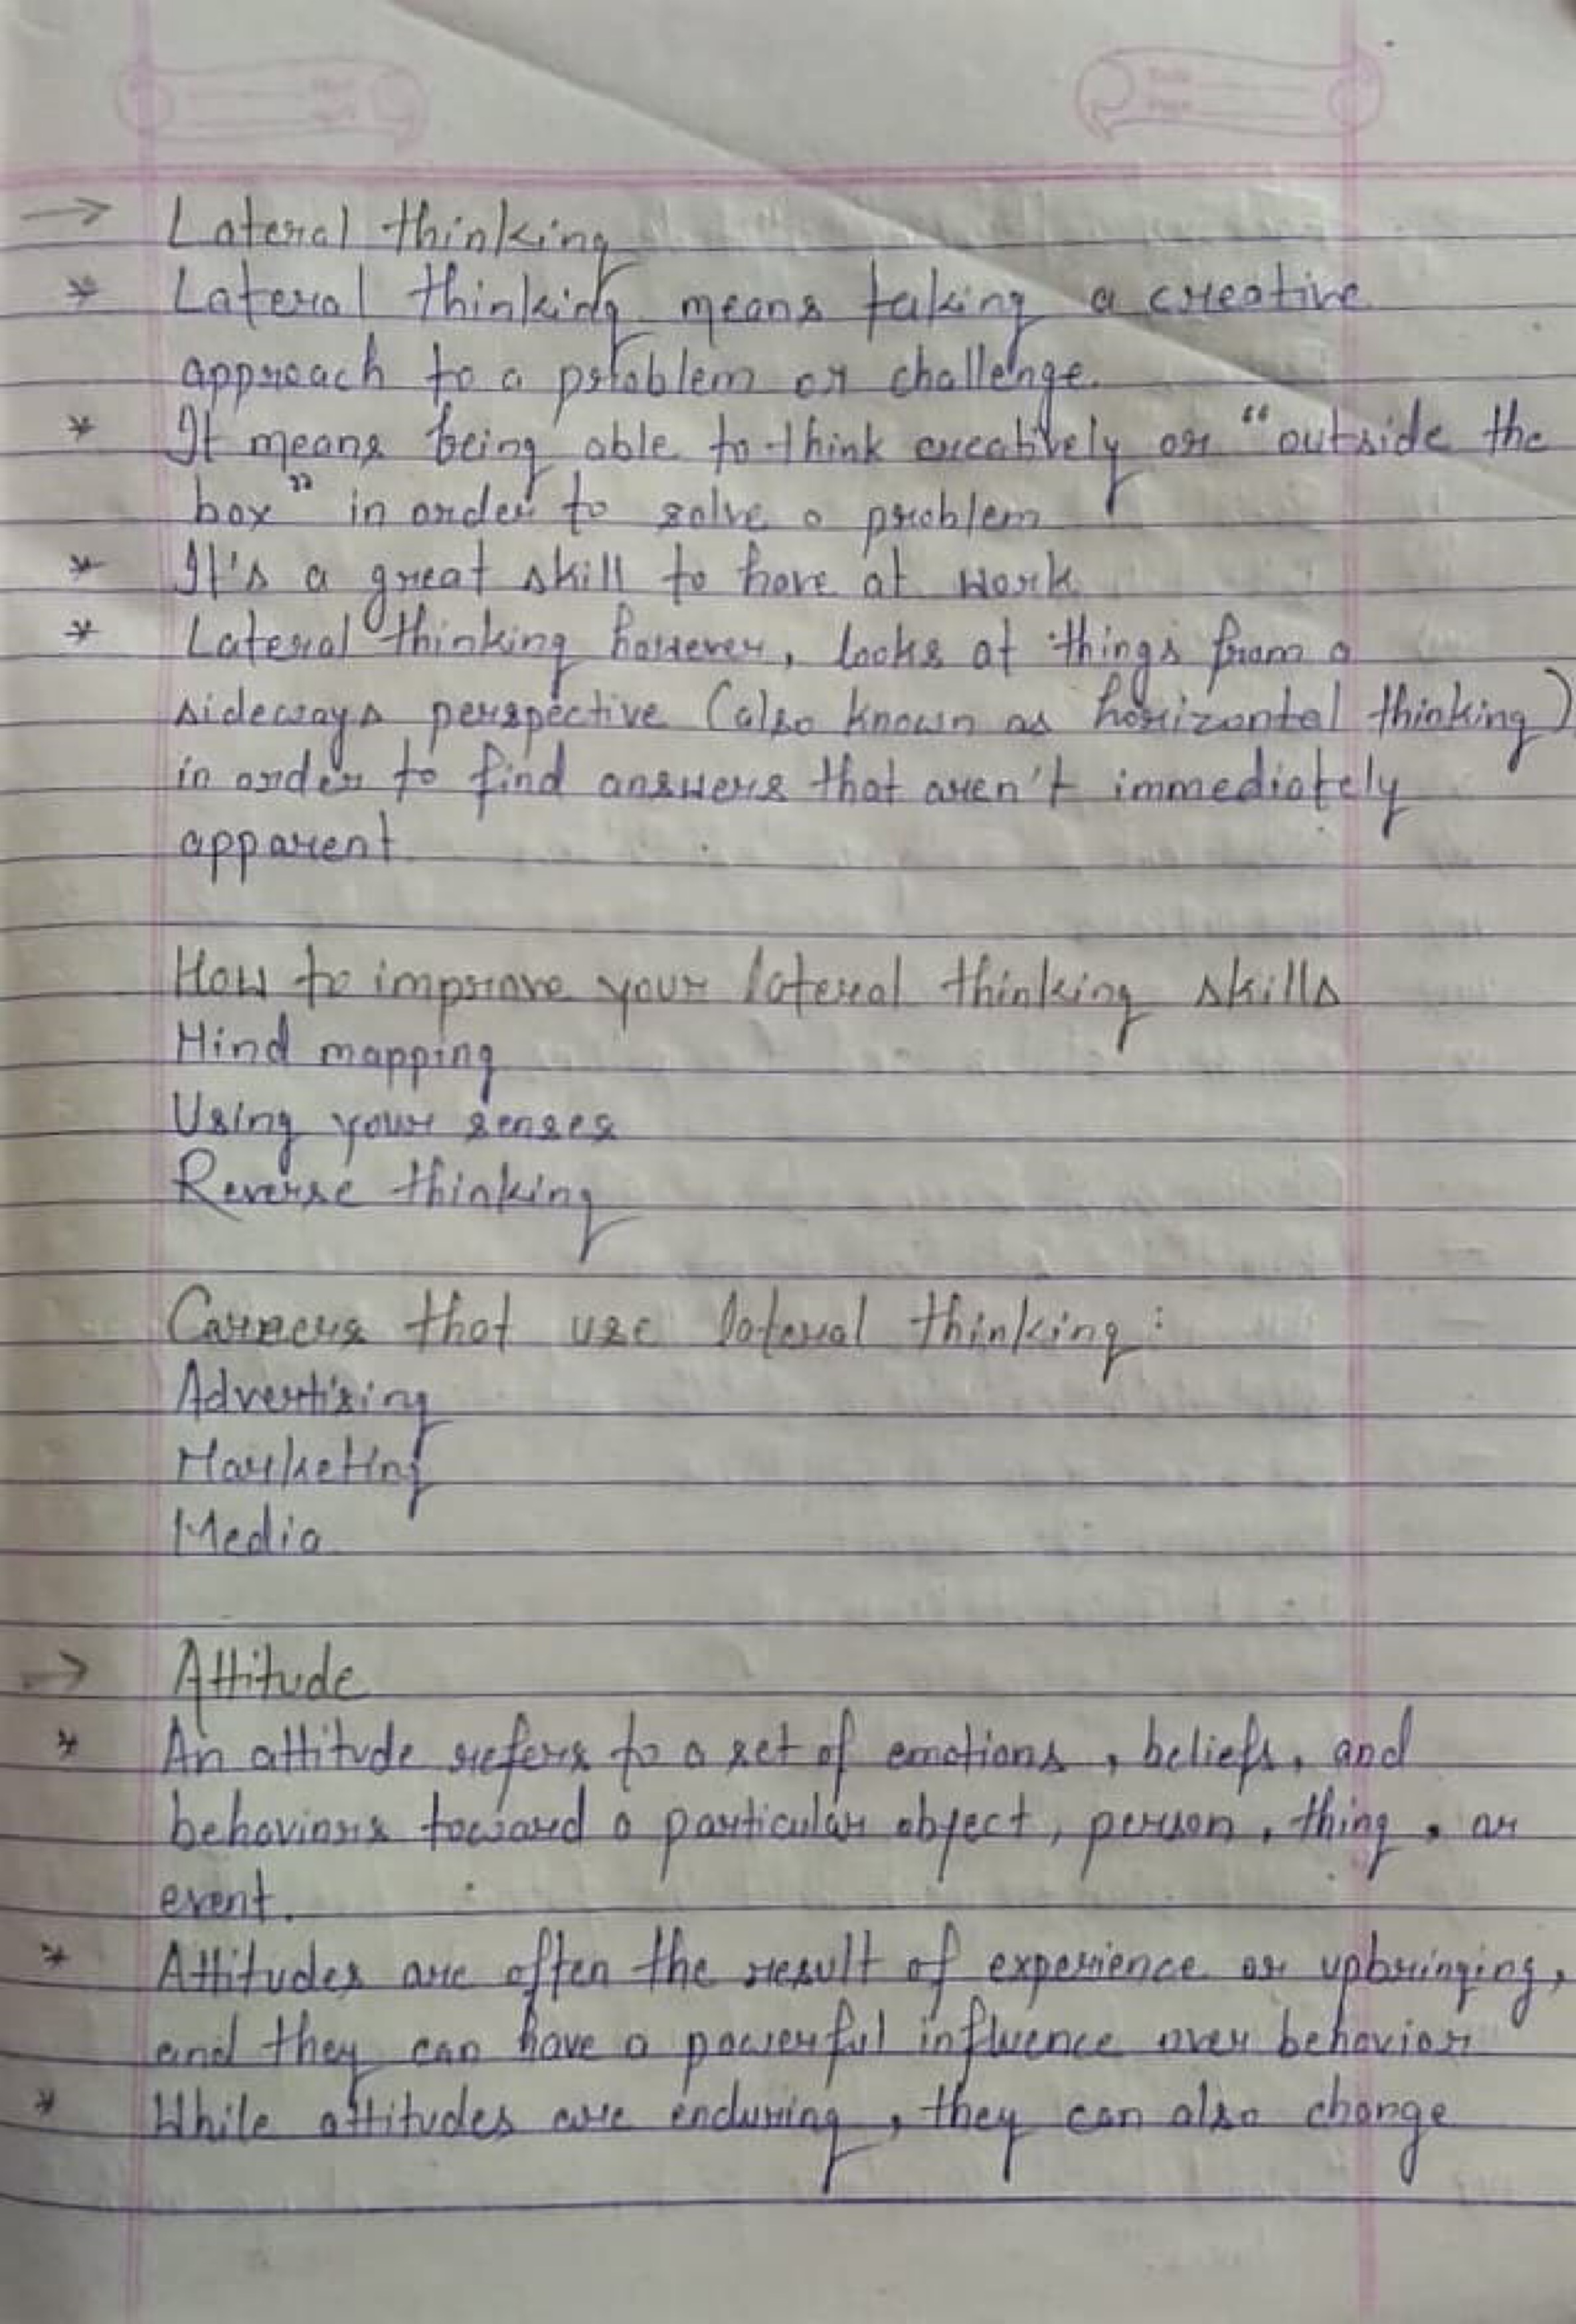 → Lateral thinking
* Lateral thinking means taking a creative
approach to a problem or challenge.
* It means being able to think creatively or "outside the
box" in order to solve a problem
* It's a great skill to have at work
* Lateral thinking however, looks at things from a
sideways perspective (also known as horizontal thinking)
in order to find answers that aren't immediately
apparent.
How to improve your lateral thinking skills
Mind mapping
Using your senses
Reverse thinking
Careers that use lateral thinking:
Advertising
Marketing
Media
→ Attitude
* An attitude refers to a set of emotions, beliefs, and
behaviors toward a particular object, person, thing, or
event.
* Attitudes are often the result of experience or upbringing,
and they can have a powerful influence over behavior
* While attitudes are enduring, they can also change